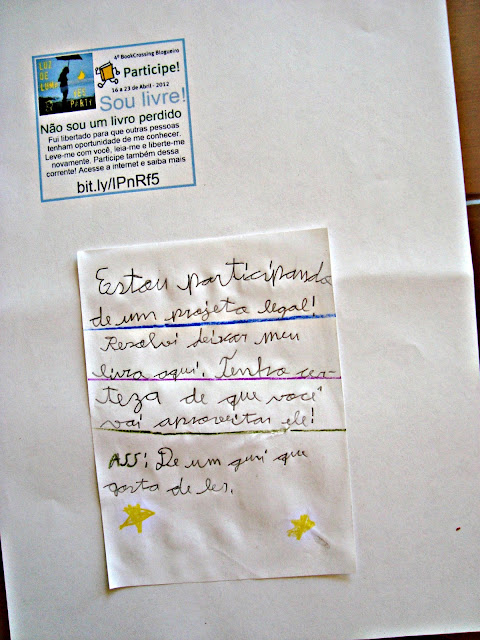 LUZ
DE
LUMA
YES
PARTY
4º BookCrossing Blogueiro
Participe!
16 a 23 de Abril - 2012
Sou livre!
Não sou um livro perdido
Fui libertado para que outras pessoas
tenham oportunidade de me conhecer.
Leve-me com você, leia-me e liberte-me
novamente. Participe também dessa
corrente! Acesse a internet e saiba mais
bit.ly/IPnRf5
Estou participando
de um projeto legal!
Resolvi deixar meu
livro aqui. Tenho cer-
teza de que você
vai aproveitar ele!
ASS: De um guri que
gosta de ler.